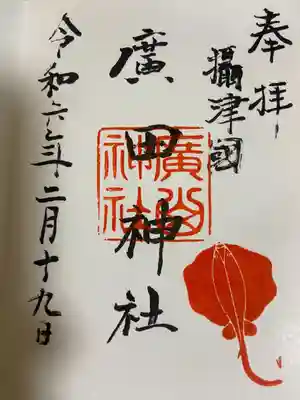 奉拝
攝津國
廣田神社
廣田神社
令和六年二月十九日